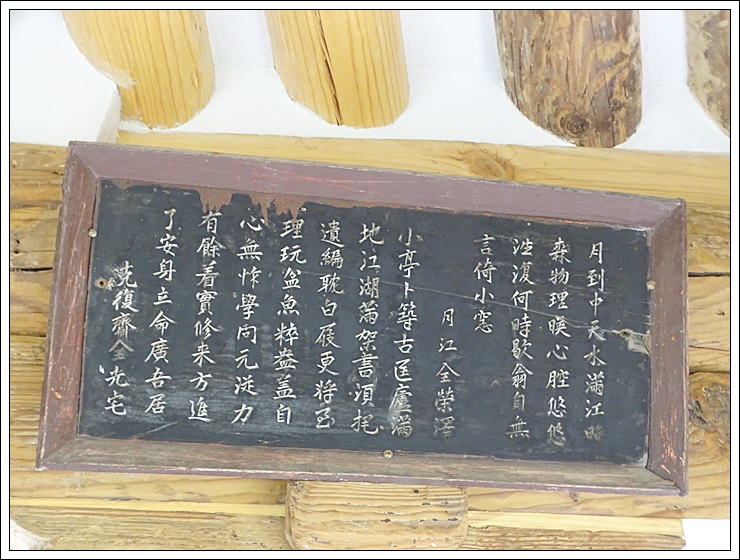 月到中天水滿江昭
森物理暎心腔悠悠
澨澓何時歇翁自無
言倚小窓
月江全榮澤
小亭卜築古匡廬滿
地江湖滿架書須把
遺編耽白屐更將至
理玩盆魚粹盎盖自
心無怍學問元從力
有餘着實修来方進
了安身立命廣吾居
洗復齋全光宅